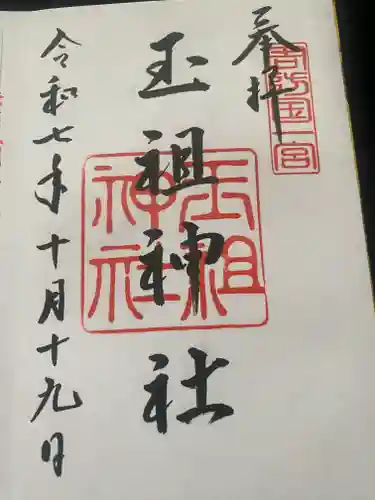 奉拝
周防国一宮
玉祖神社
玉祖神社
令和七年十月十九日